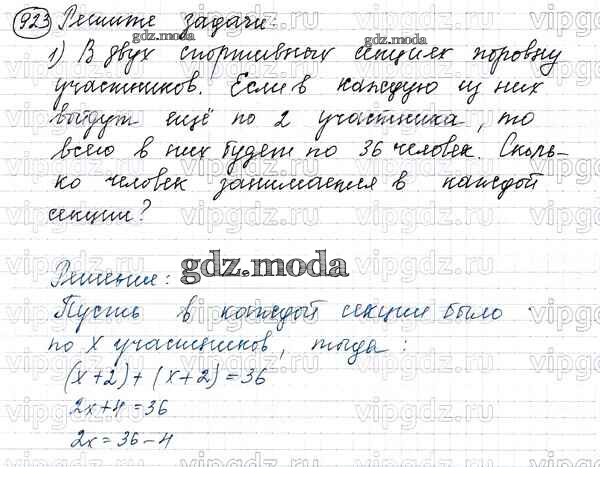 923 Решите задачи:
1) В двух спортивных секциях поровну
участников. Если в каждую из них
войдут ещё по 2 участника, то
всего в них будет по 36 человек. Сколь-
ко человек занимается в каждой
секции?
Решение:
gdz.moda
Пусть в каждой секции было
по x участников, тогда:
(x+2)+(x+2)=36
2x+4=36
2x=36-4